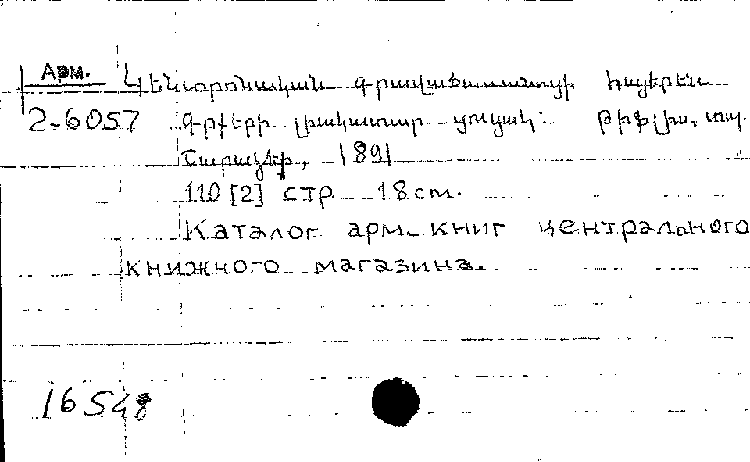 Арм. Կենտրոնական գրավաճառանոցի հայերէն
2-6057 գրքերի լիակատար ցուցակ: Թիֆլիս, տպ.
Շարաձէի, 1891
110 [2] стр 18 cm.
Каталог арм. книг центрального
книжного магазина.
16548